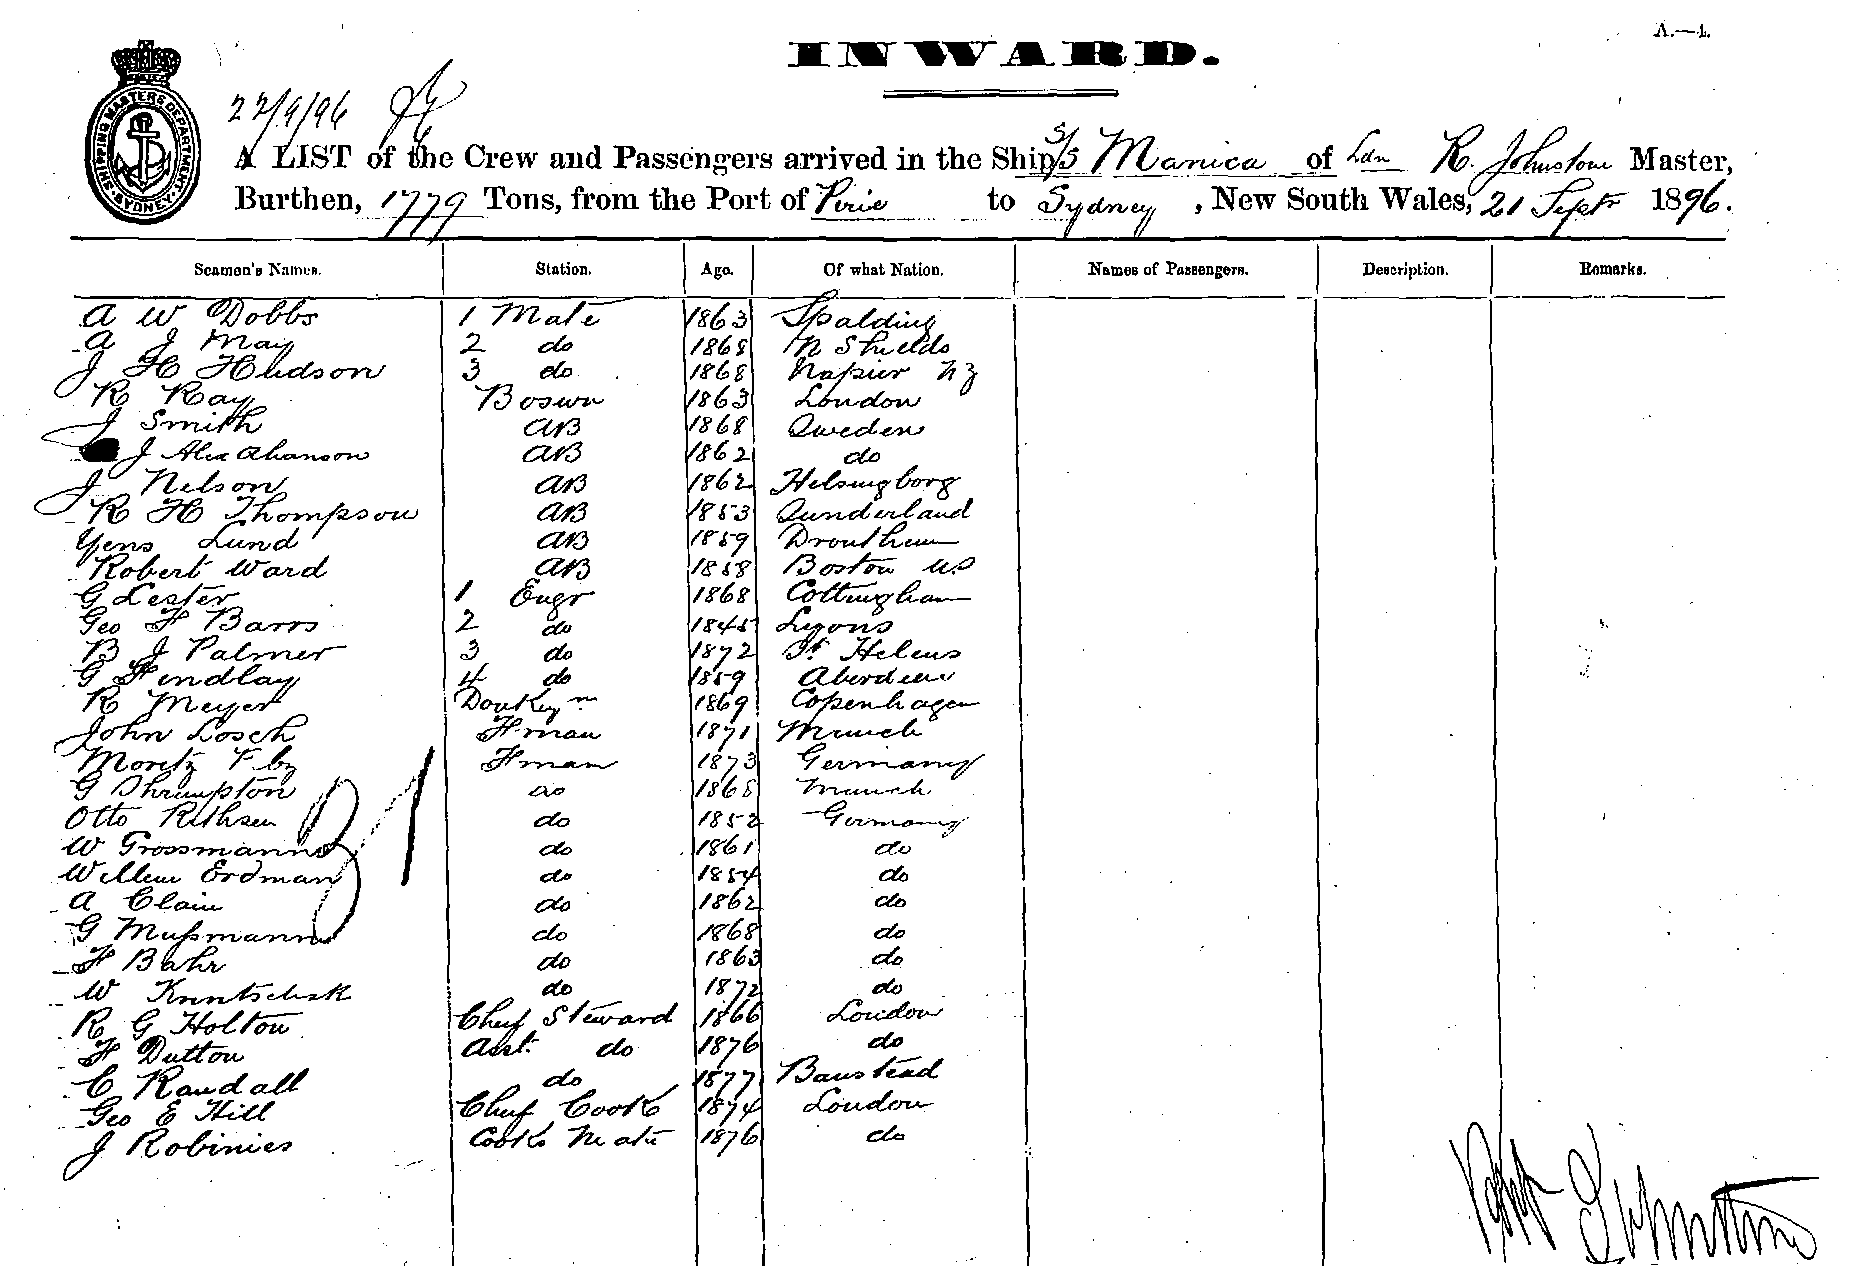 A.—1.
INWARD.
SHIPPING MASTERS DEPARTMENT SYDNEY
22/9/96
A LIST of the Crew and Passengers arrived in the Ship S/S Manica of Ldn R. Johnstone Master,
Burthen, 1779 Tons, from the Port of Pirie to Sydney, New South Wales, 21 Septr 1896.
Seamen's Names. Station. Age. Of what Nation. Names of Passengers. Description. Remarks.
A W Dobbs 1 Mate 1863 Spalding
A J May 2 do 1868 N Shields
J H Hudson 3 do 1868 Napier NZ
R Ray Boswn 1863 London
J Smith AB 1868 Sweden
J Alex Ahanson AB 1862 do
J Nelson AB 1862 Helsingborg
R H Thompson AB 1853 Sunderland
Yens Lund AB 1859 Drontheim
Robert Ward AB 1858 Boston US
G Lester 1 Engr 1868 Cottingham
Geo F Barrs 2 do 1845 Lyons
B J Palmer 3 do 1872 St Helens
G Findlay 4 do 1859 Aberdeen
R Meyer Donkeyn 1869 Copenhagen
John Losch Fman 1871 Munich
Moritz Fman 1873 Germany
G Shrimpton do 1868 Munich
Otto do 1852 Germany
W Grossmann do 1861 do
Willem Erdman do 1854 do
A Clain do 1862 do
G Mußmann do 1868 do
F Bahr do 1863 do
W do 1872 do
R G Holton Chief Steward 1866 London
F Dutton Asst. do 1876 do
C Randall do 1877 Banstead
Geo E Hill Chief Cook 1874 London
J Robinies Cooks Mate 1876 do
Robt Johnstone